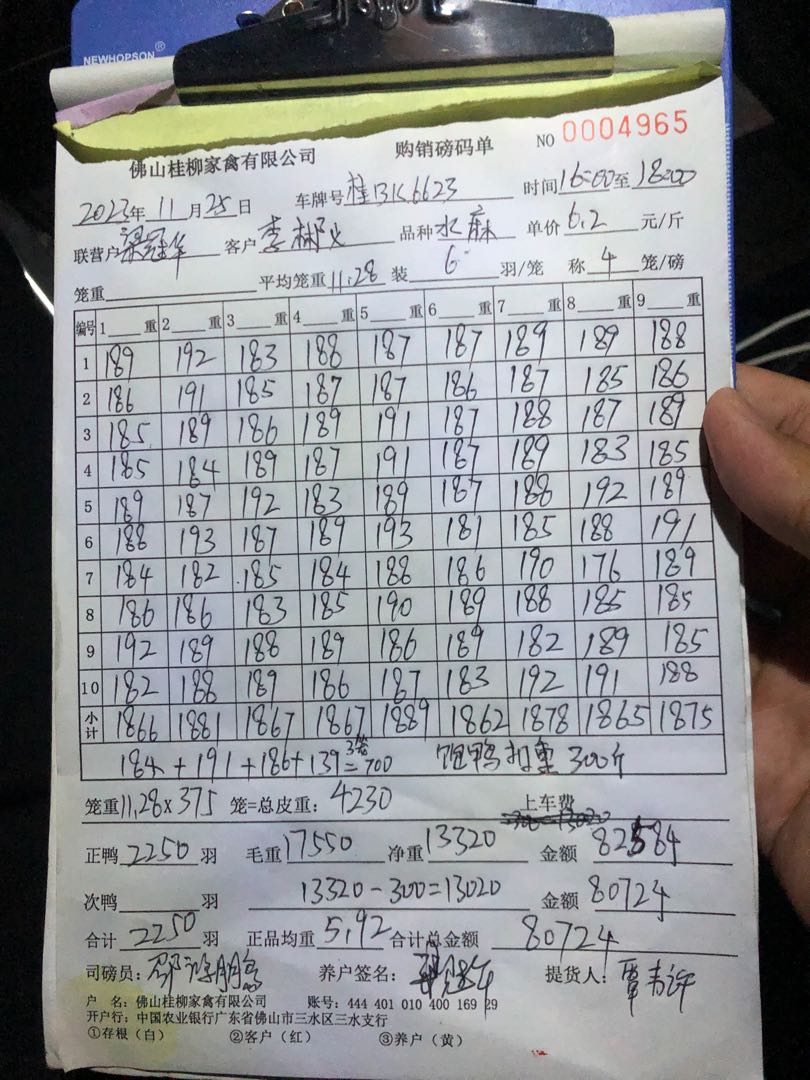 NEWHOPSON®
佛山桂柳家禽有限公司 购销磅码单 NO 0004965
2023年 11 月 25 日 车牌号 桂BK6623 时间 16:00 至 18:00
联营户 梁冠华 客户 李彬 品种 水麻 单价 6.2 元/斤
笼重 平均笼重 11.28 装 6 羽/笼 称 4 笼/磅
编号 1 重 2 重 3 重 4 重 5 重 6 重 7 重 8 重 9 重
1 189 192 183 188 187 187 189 189 188
2 186 191 185 187 187 186 187 185 186
3 185 189 186 189 191 187 188 187 189
4 185 184 189 187 191 187 189 183 185
5 189 187 192 183 189 187 188 192 189
6 188 193 187 189 193 181 185 188 191
7 184 182 185 184 188 186 190 176 189
8 186 186 183 185 190 189 188 185 185
9 192 189 188 189 186 189 182 189 185
10 182 188 189 186 187 183 192 191 188
小计 1866 1881 1867 1867 1889 1862 1878 1865 1875
184+191+186+139 3笼 =700 饱鸭扣重 300斤
笼重 11.28 x 375 笼=总皮重: 4230 上车费
正鸭 2250 羽 毛重 17550 净重 13320 金额 82584
次鸭 羽 13320-300=13020 金额 80724
合计 2250 羽 正品均重 5.92 合计总金额 80724
司磅员: 养户签名: 提货人:
户 名: 佛山桂柳家禽有限公司 账号: 444 401 010 400 169 29
开户行: 中国农业银行广东省佛山市三水区三水支行
①存根(白) ②客户(红) ③养户(黄)